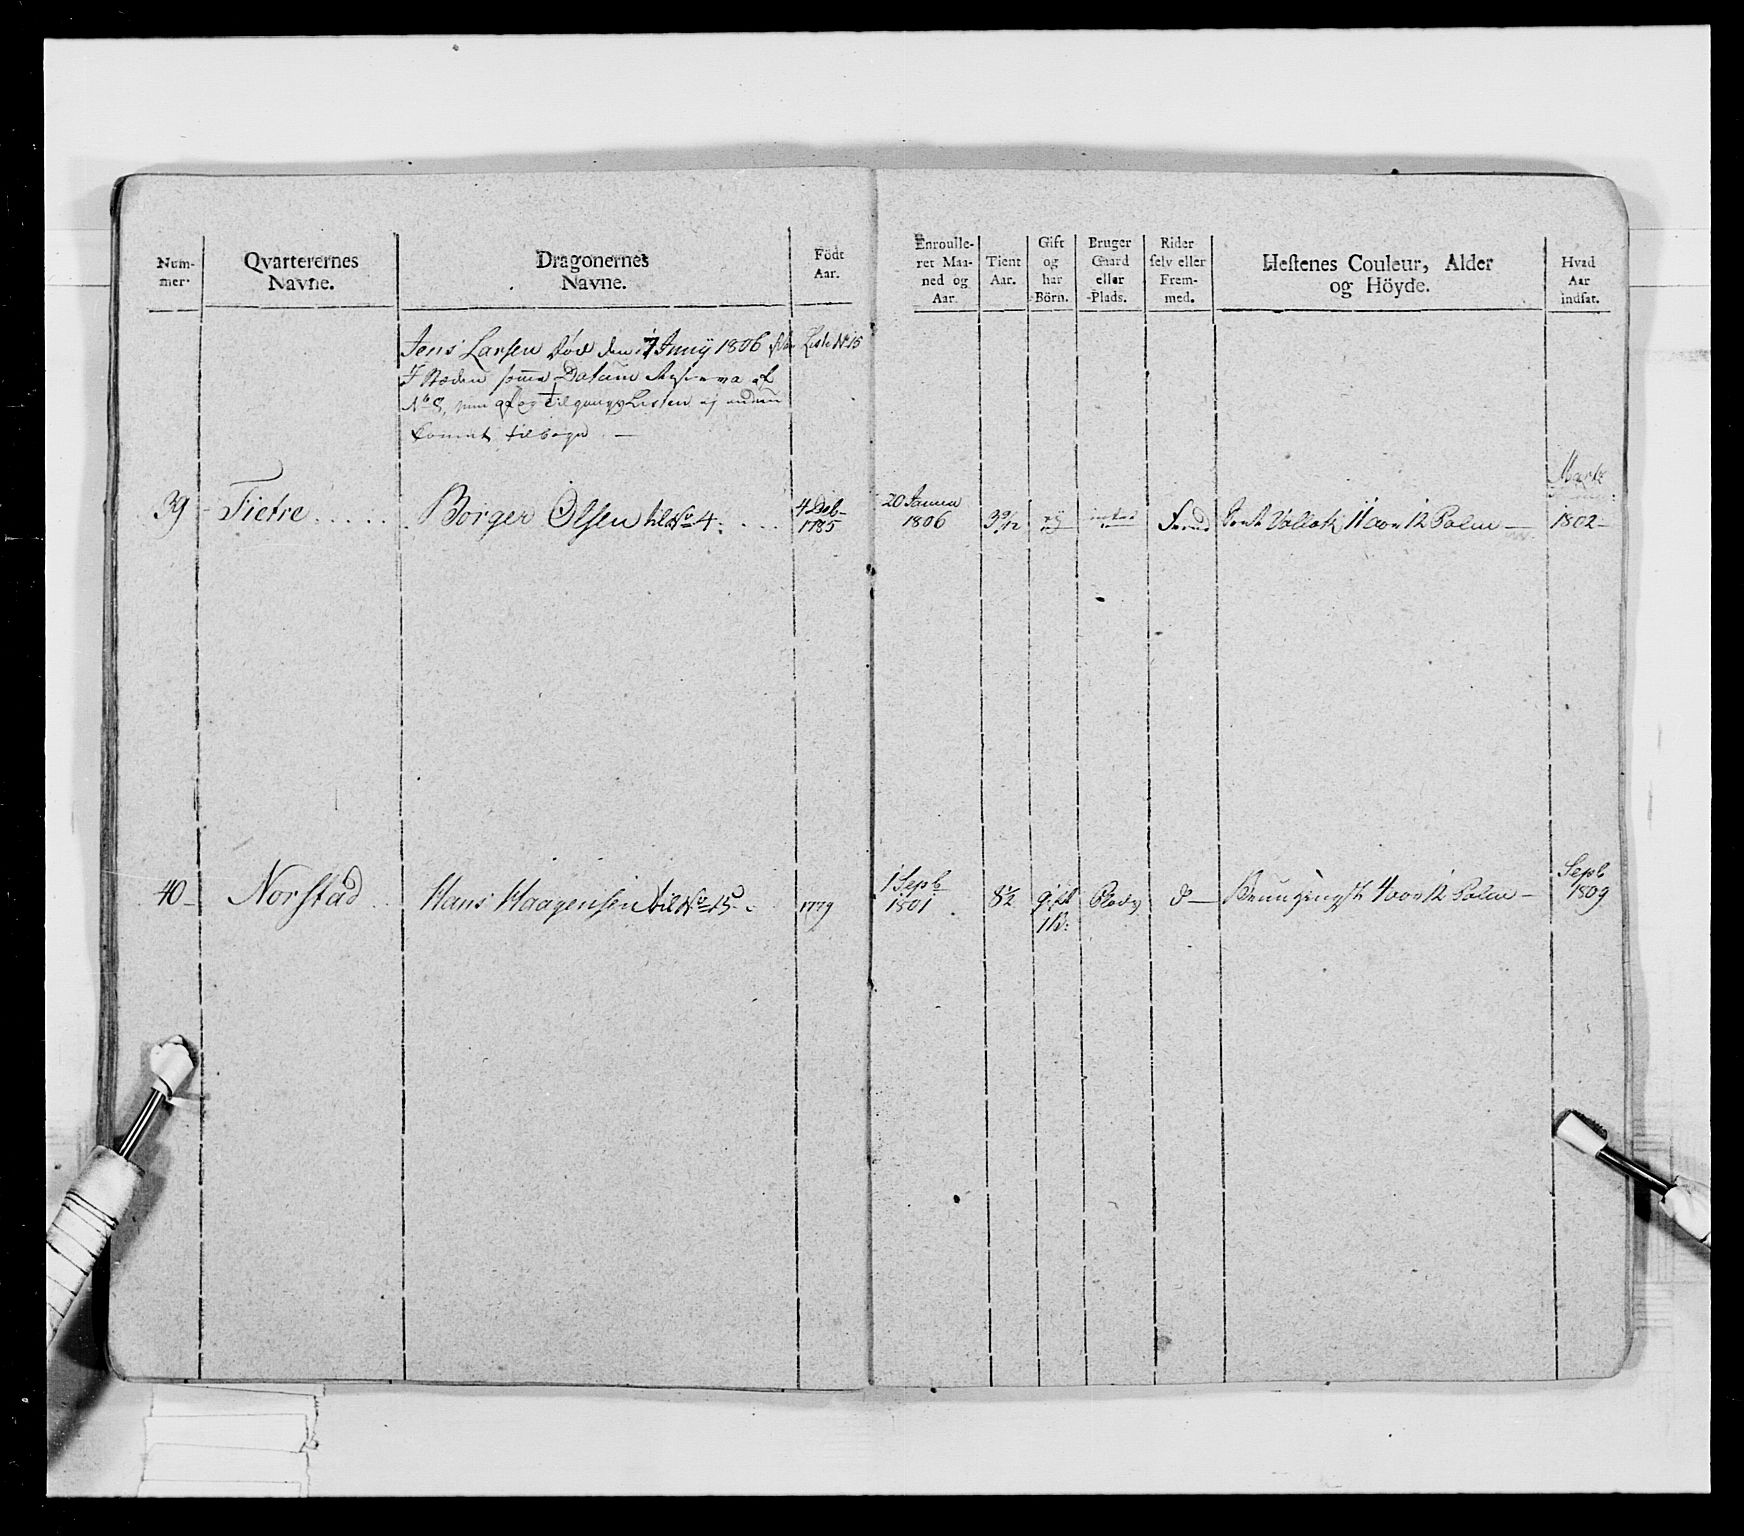 Num-
mer.
Qvarterernes
Navne.
Dragonernes
Navne.
Födt
Aar.
Enroulle-
ret Maa-
ned og
Aar.
Tient
Aar.
Gift
og
har
Börn.
Bruger
Gaard
eller
Plads.
Rider
selv eller
Frem-
med.
Hestenes Couleur, Alder
og Höyde.
Hvad
Aar
indsat.
Jens Larsen död den 7 Junÿ 1806 Liste No 15
Datum af
No 8, Listen
tilbage. —
39 - Fietre . . . . . Börger Olsen til No 4. . . . 4 Deb 1785 20 Janua 1806 3 9/12 Vallak 11 aar 12 Palm — Marts 1802 -
40 - Norstad . . Hans Haagensen til No 15 - . 1779 1 Sepb 1801 8 1/2 gift 1 B: Plads d — 4 aar 12 Palm — Sepb 1809